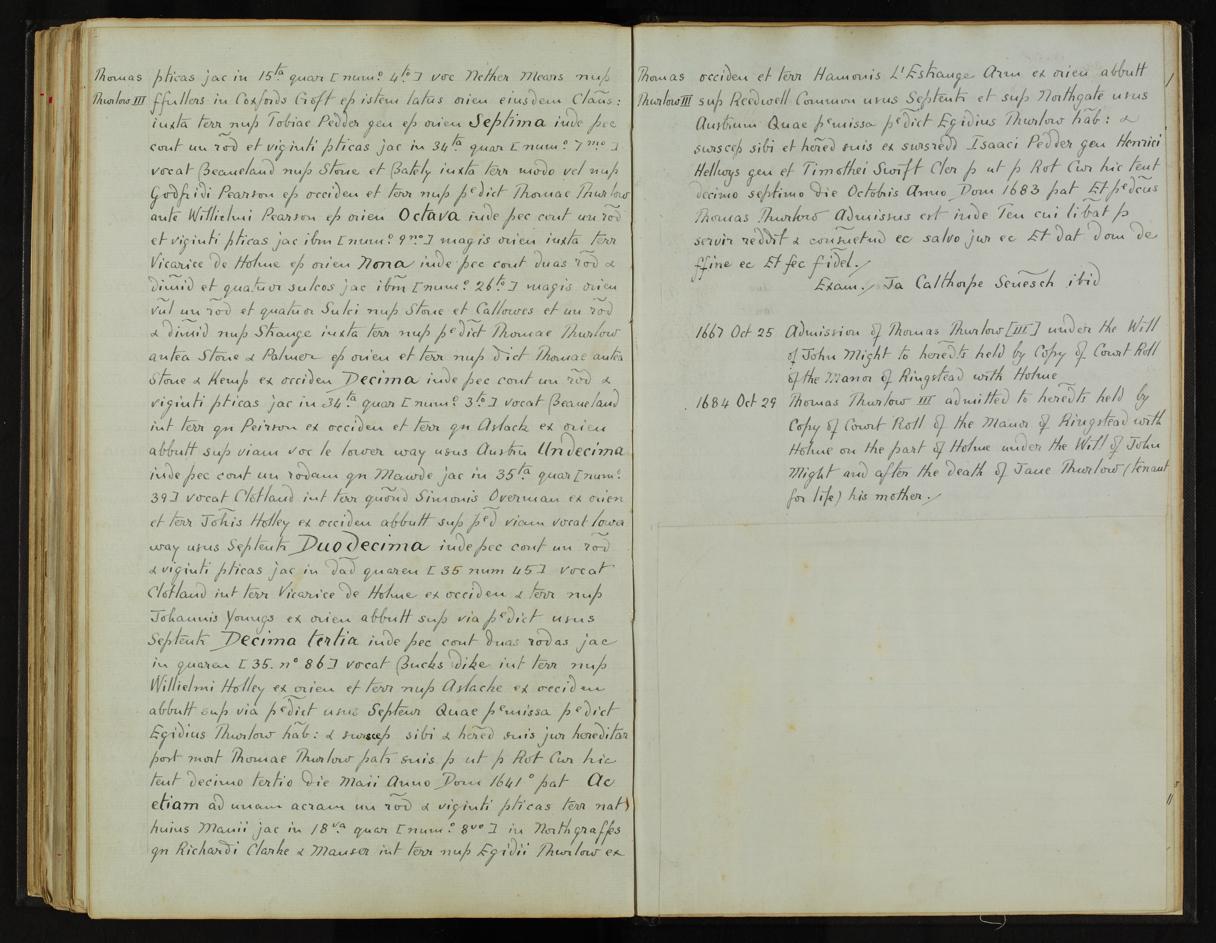 Thomas pticas jac in 15ta quar [num.o 4to] voc Nether Mears nup
Thurlow III ffullers in Coxfords Croft ep istem latus orien eiusdem Claus:
iuxta terr nup Tobiae Pedder gen ep orien Septima inde pec
cont un rod et viginti pticas jac in 34ta quar [num.o 7mo]
vocat Beaneland nup Stone et Bately iuxta terr modo vel nup
Godfridi Pearson ep occiden et terr nup pedict Thomae Thurlow
ante Willielmi Pearson ep orien Octava inde pec cont un rod
et viginti pticas jac ibm [num.o 9no] magis orien iuxta terr
Vicarice de Holme ep orien Nona inde pec cont duas rod &
dimid et quatuor sulcos jac ibm [num.o 26to] magis orien
vul un rod et quatuor Sulci nup Stone et Callowes et un rod
& dimid nup Strange iuxta terr nup pedict Thomae Thurlow
antea Stone & Palmer ep orien et terr nup dict Thomae antea
Stone & Kemp ex occiden Decima inde pec cont un rod &
viginti pticas jac in 34ta quar [num.o 3to] vocat Beaneland
int terr qn Peirson ex occiden et terr qn Aslack ex orien
abbutt sup viam voc le lower way usus Austru Undecima
inde pec cont un rodam qn Mawde jac in 35ta quar [num.o
39] vocat Clotland int terr quond Simonis Overman ex orien
et terr Johis Holley ex occiden abbutt sup ped viam vocat lowa
way usus Septentr Duodecima inde pec cont un rod
& viginti pticas jac in dad quaren [35 num 45] vocat
Clotland int terr Vicarice de Holme ex occiden & terr nup
Johannis Youngs ex orien abbutt sup via pedict usus
Septentr Decima tertia inde pec cont duas rodas jac
in quaren [35. no 86] vocat Bucks dike int terr nup
Willielmi Holley ex orien et terr nup Aslacke ex occiden
abbutt sup via pedict usus Septeur Quae pemissa pedict
Egidius Thurlow hab: & surscep sibi & hered suis jur hereditar
port mort Thomae Thurlow patr suis p ut p Rot Cur hic
tent decimo tertio die Maii Anno Dom 1641o pat Ac
etiam ad unam acram un rod & viginti pticas terr nat
huius Manii jac in 18va quar [num.o 8vo] in Northgraffes
qn Richardi Clarke & Mauser int terr nup Egidii Thurlow ex
Thomas occiden et terr Hamonis L'Estrange Arm ex orien abbutt
Thurlow III sup Reedwell Common usus Septentr et sup Northgate usus
Austrum Quae pemissa pedict Egidius Thurlow hab: &
surscep sibi et hered suis ex sursredd Isaaci Pedder gen Henrici
Hellwys gen et Timothei Swift Cler p ut p Rot Cur hic tent
decimo septimo die Octobris Anno Dom 1683 pat Et pedcus
Thomas Thurlow Admissus est inde Ten cui libat p
servir reddit & consuetud ec salvo jur ec Et dat dom de
ffine ec Et fec fidel.
Exam. Ja Calthorpe Senesch ibid
1667 Oct 25 Admission of Thomas Thurlow [III] under the Will
of John Might to heredts held by Copy of Court Roll
of the Manor of Ringstead with Holme
1684 Oct 29 Thomas Thurlow III admitted to heredts held by
Copy of Court Roll of the Manor of Ringstead with
Holme on the part of Holme under the Will of John
Might and after the death of Jane Thurlow (tenant
for life) his mother.